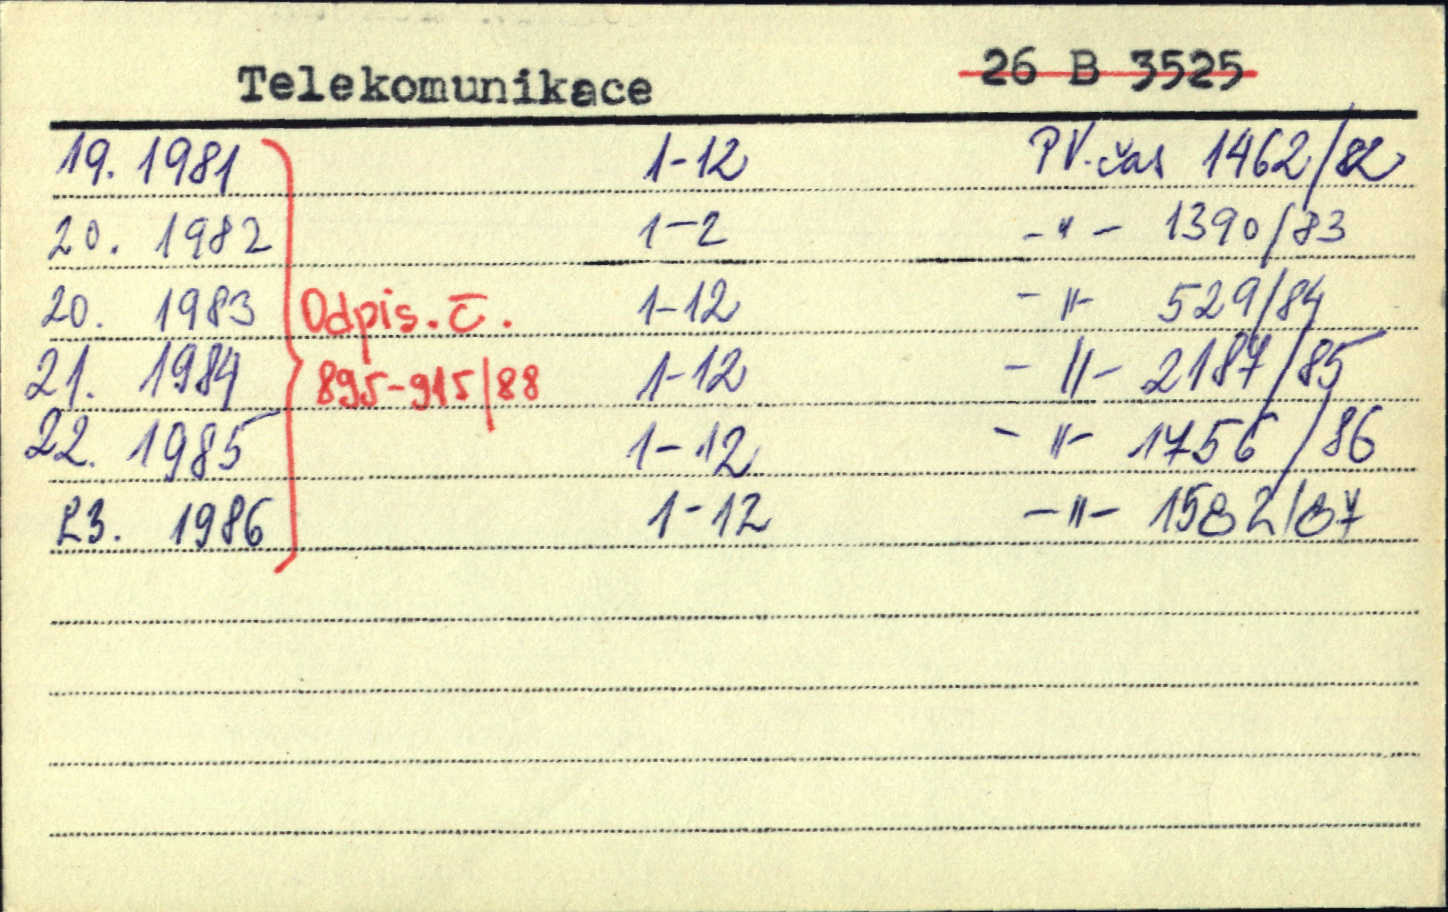 Telekomunikace 26 B 3525
19. 1981 1-12 PV.čas 1462/82
20. 1982 1-2 -"- 1390/83
20. 1983 Odpis. č. 1-12 -"- 529/84
21. 1984 895-915/88 1-12 -"- 2187/85
22. 1985 1-12 -"- 1756/86
23. 1986 1-12 -"- 1582/87